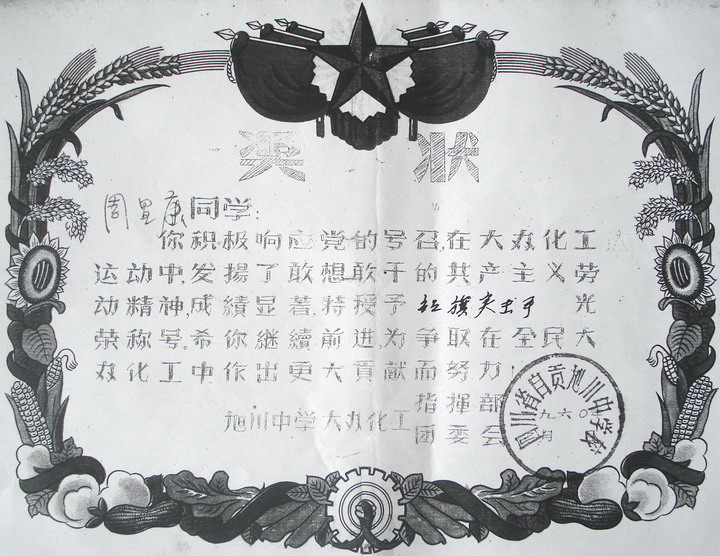 奖状
周里康同学:
你积极响应党的号召,在大办化工
运动中,发揚了敢想敢干的共产主义劳
动精神,成績显著,特授予 红旗突击手 光
荣称号,希你継續前进,为争取在全民大
办化工中作出更大貢献而努力
旭川中学大办化工指揮部
团委会
九六〇
月
四川省自贡旭川中学校